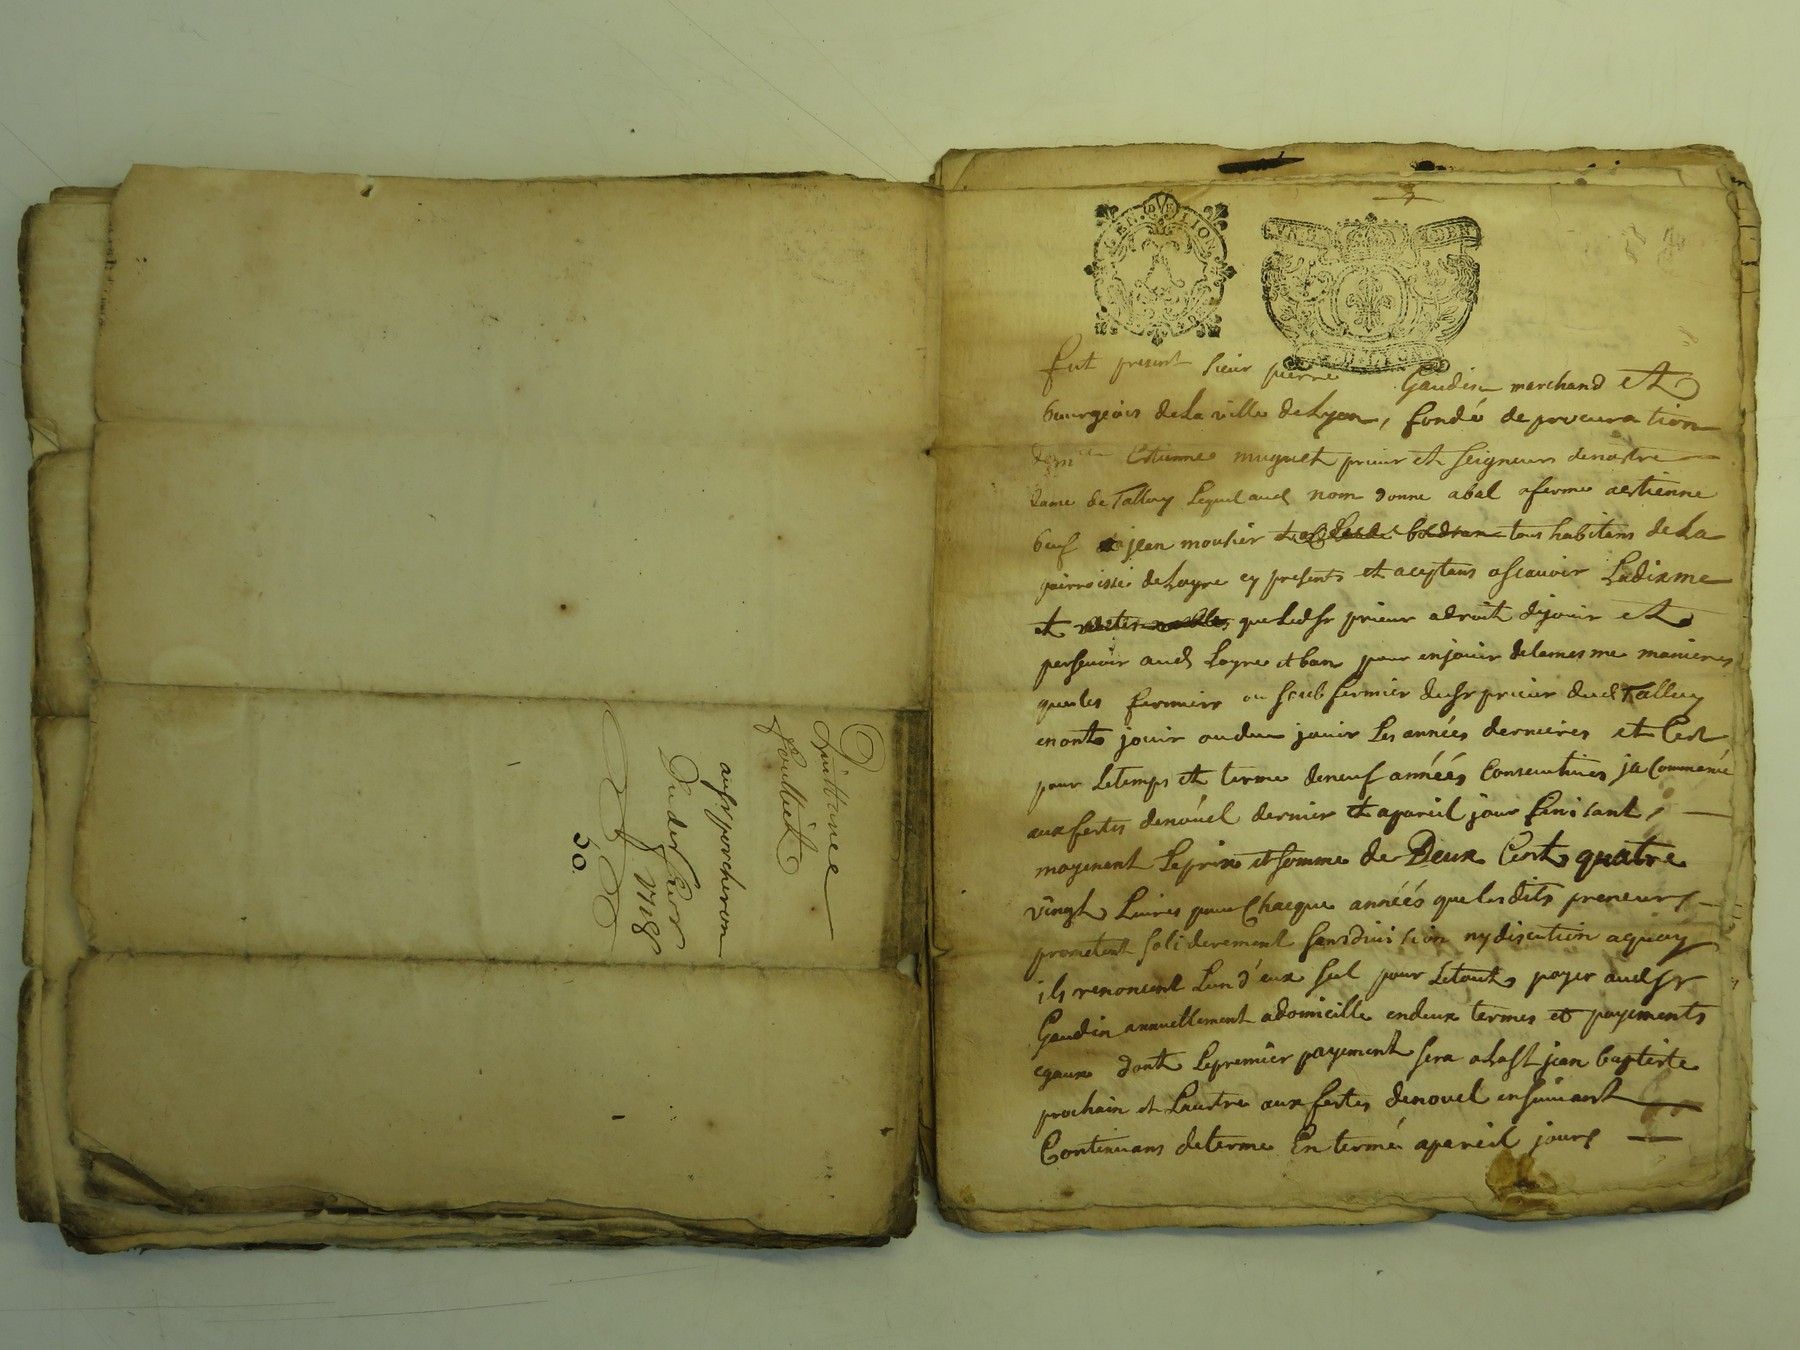 Quittance
Loulliet
au sr porcheron
Du der Xbre
1718
50.
GEN. DE LION
fut present sieur pierre Gaudin marchand et
bourgeois de La ville de Lyon, fondé de procuration
de mre Estienne muguet prieur et seigneur de nostre
dame de Talluy Lequel aud nom donne a bal a ferme a estienne
beuf a jean mousier tous habitans de La
parroisse de Loyre cy presents et aceptans ascavoir La dixme
et que Led sr prieur a droit de jouir et
persevoir aud Loyre et ban pour en jouir de la mesme maniere
que les fermiers ou soub fermier du sr prieur dud Talluy
en ont jouir ou deu jouir Les années dernieres et Cest
pour Le temps et terme de neuf années Consecutives ja Commencé
aux festes de nöuel dernier et a pareil jour finisant,
moyenent Le prix et somme de Deux Cent quatre
vingt Livres pour Chacque années que Lesdits preneurs
prometent soliderement sans division ny discution a quoy
ils renoncent Lun d'eux seul pour Le tout payer aud sr
Gaudin annuellement a domicille en deux termes et payements
egaux dont Le premier payement sera a La st jean baptiste
prochain et Lautre aux festes de nouel ensuivant
Continuans de terme En terme a pareil jours